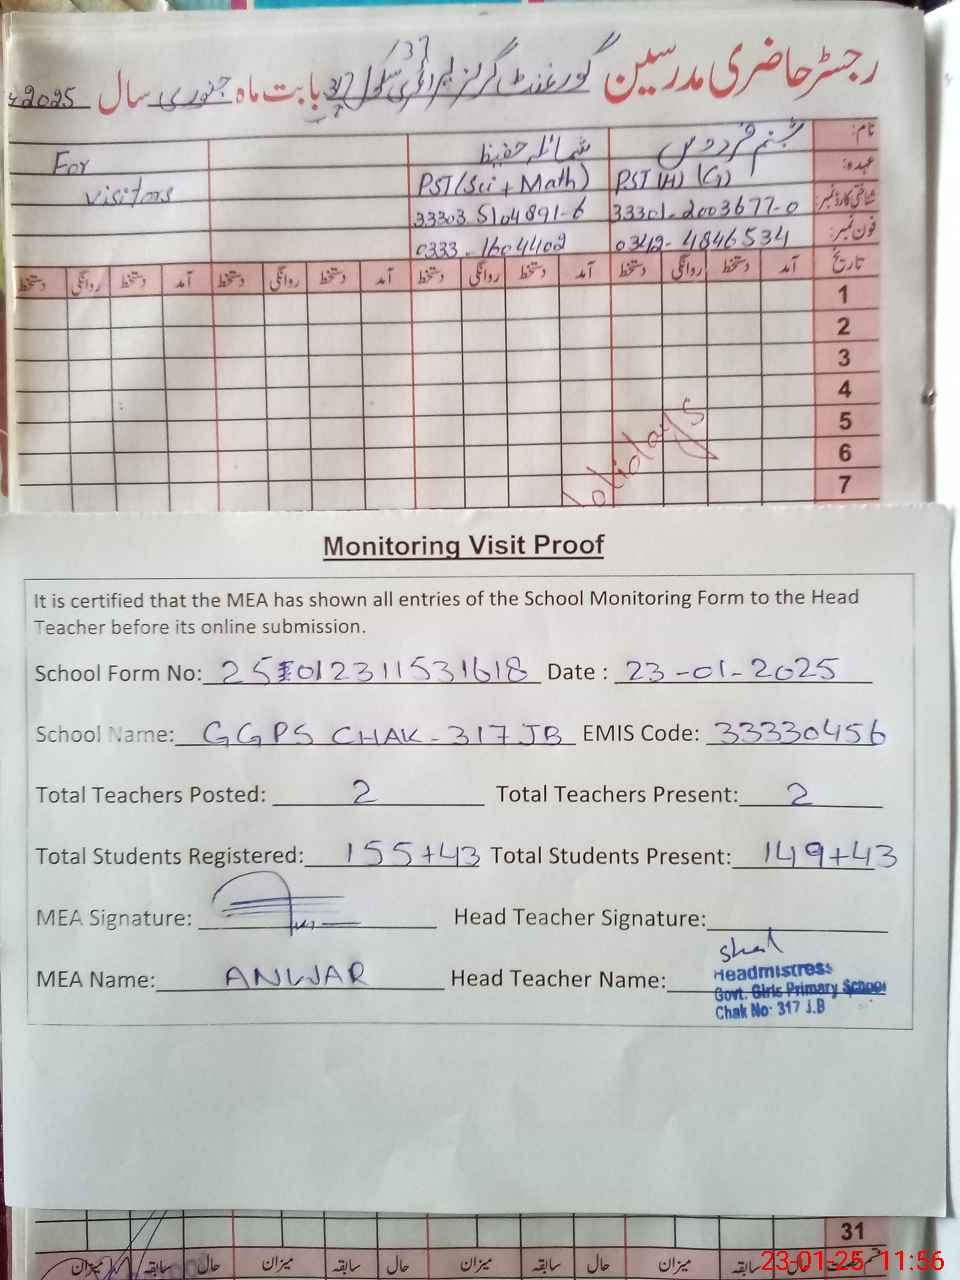 رجسٹر حاضری مدرسین گورنمنٹ گرلز پرائمری سکول 317 بابت ماہ جنوری سال 2025ء
نام: شبنم فردوس شمائلہ حفیظ For
عہدہ: PST (H) (G) PST (Sci + Math) visitors
شناختی کارڈ نمبر: 33301-2003677-0 33303-5104891-6
فون نمبر: 0342-4846534 0333-1604402
تاریخ آمد دستخط روانگی دستخط آمد دستخط روانگی دستخط آمد دستخط روانگی دستخط آمد دستخط روانگی دستخط
1
2
3
4
5
6
7
Holidays
Monitoring Visit Proof
It is certified that the MEA has shown all entries of the School Monitoring Form to the Head
Teacher before its online submission.
School Form No: 25012311531618 Date : 23-01-2025
School Name: GGPS CHAK-317 JB EMIS Code: 33330456
Total Teachers Posted: 2 Total Teachers Present: 2
Total Students Registered: 155+43 Total Students Present: 149+43
MEA Signature: Head Teacher Signature:
MEA Name: ANWAR Head Teacher Name:
Headmistress
Govt. Girls Primary School
Chak No: 317 J.B
31
حال سابقہ میزان حال سابقہ میزان حال سابقہ میزان حال سابقہ میزان
23-01-25 11:56